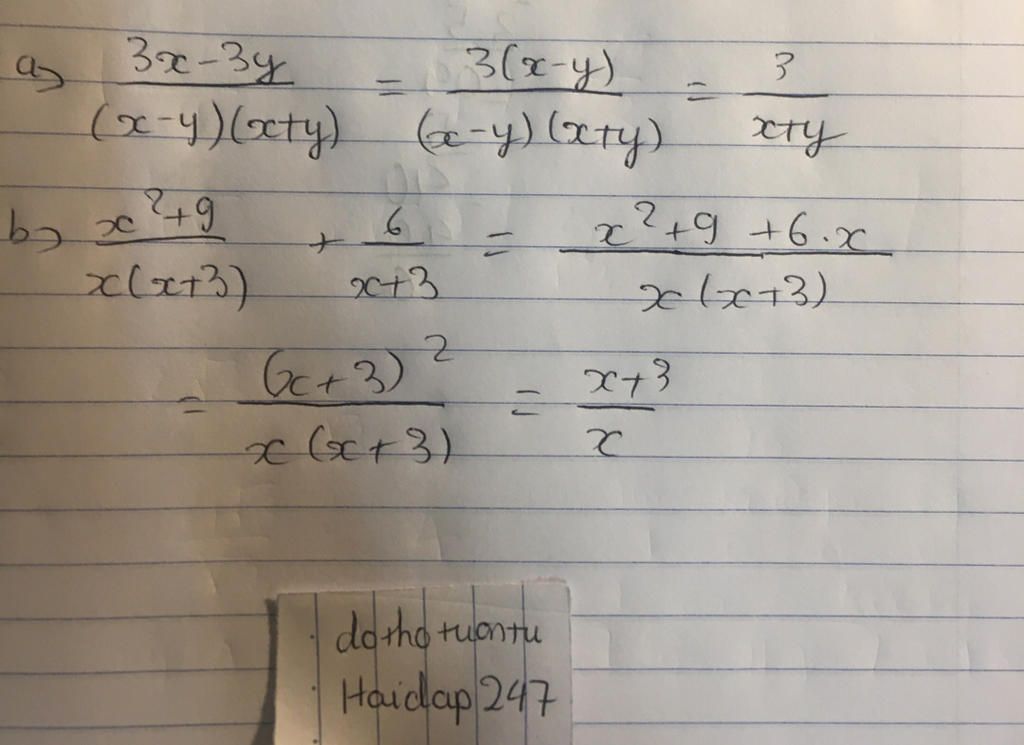 a) (3x-3y)/((x-y)(x+y)) = (3(x-y))/((x-y)(x+y)) = 3/(x+y)
b) (x²+9)/(x(x+3)) + 6/(x+3) = (x²+9+6.x)/(x(x+3))
= (x+3)²/(x(x+3)) = (x+3)/x
dothotuontu
Hoidap247